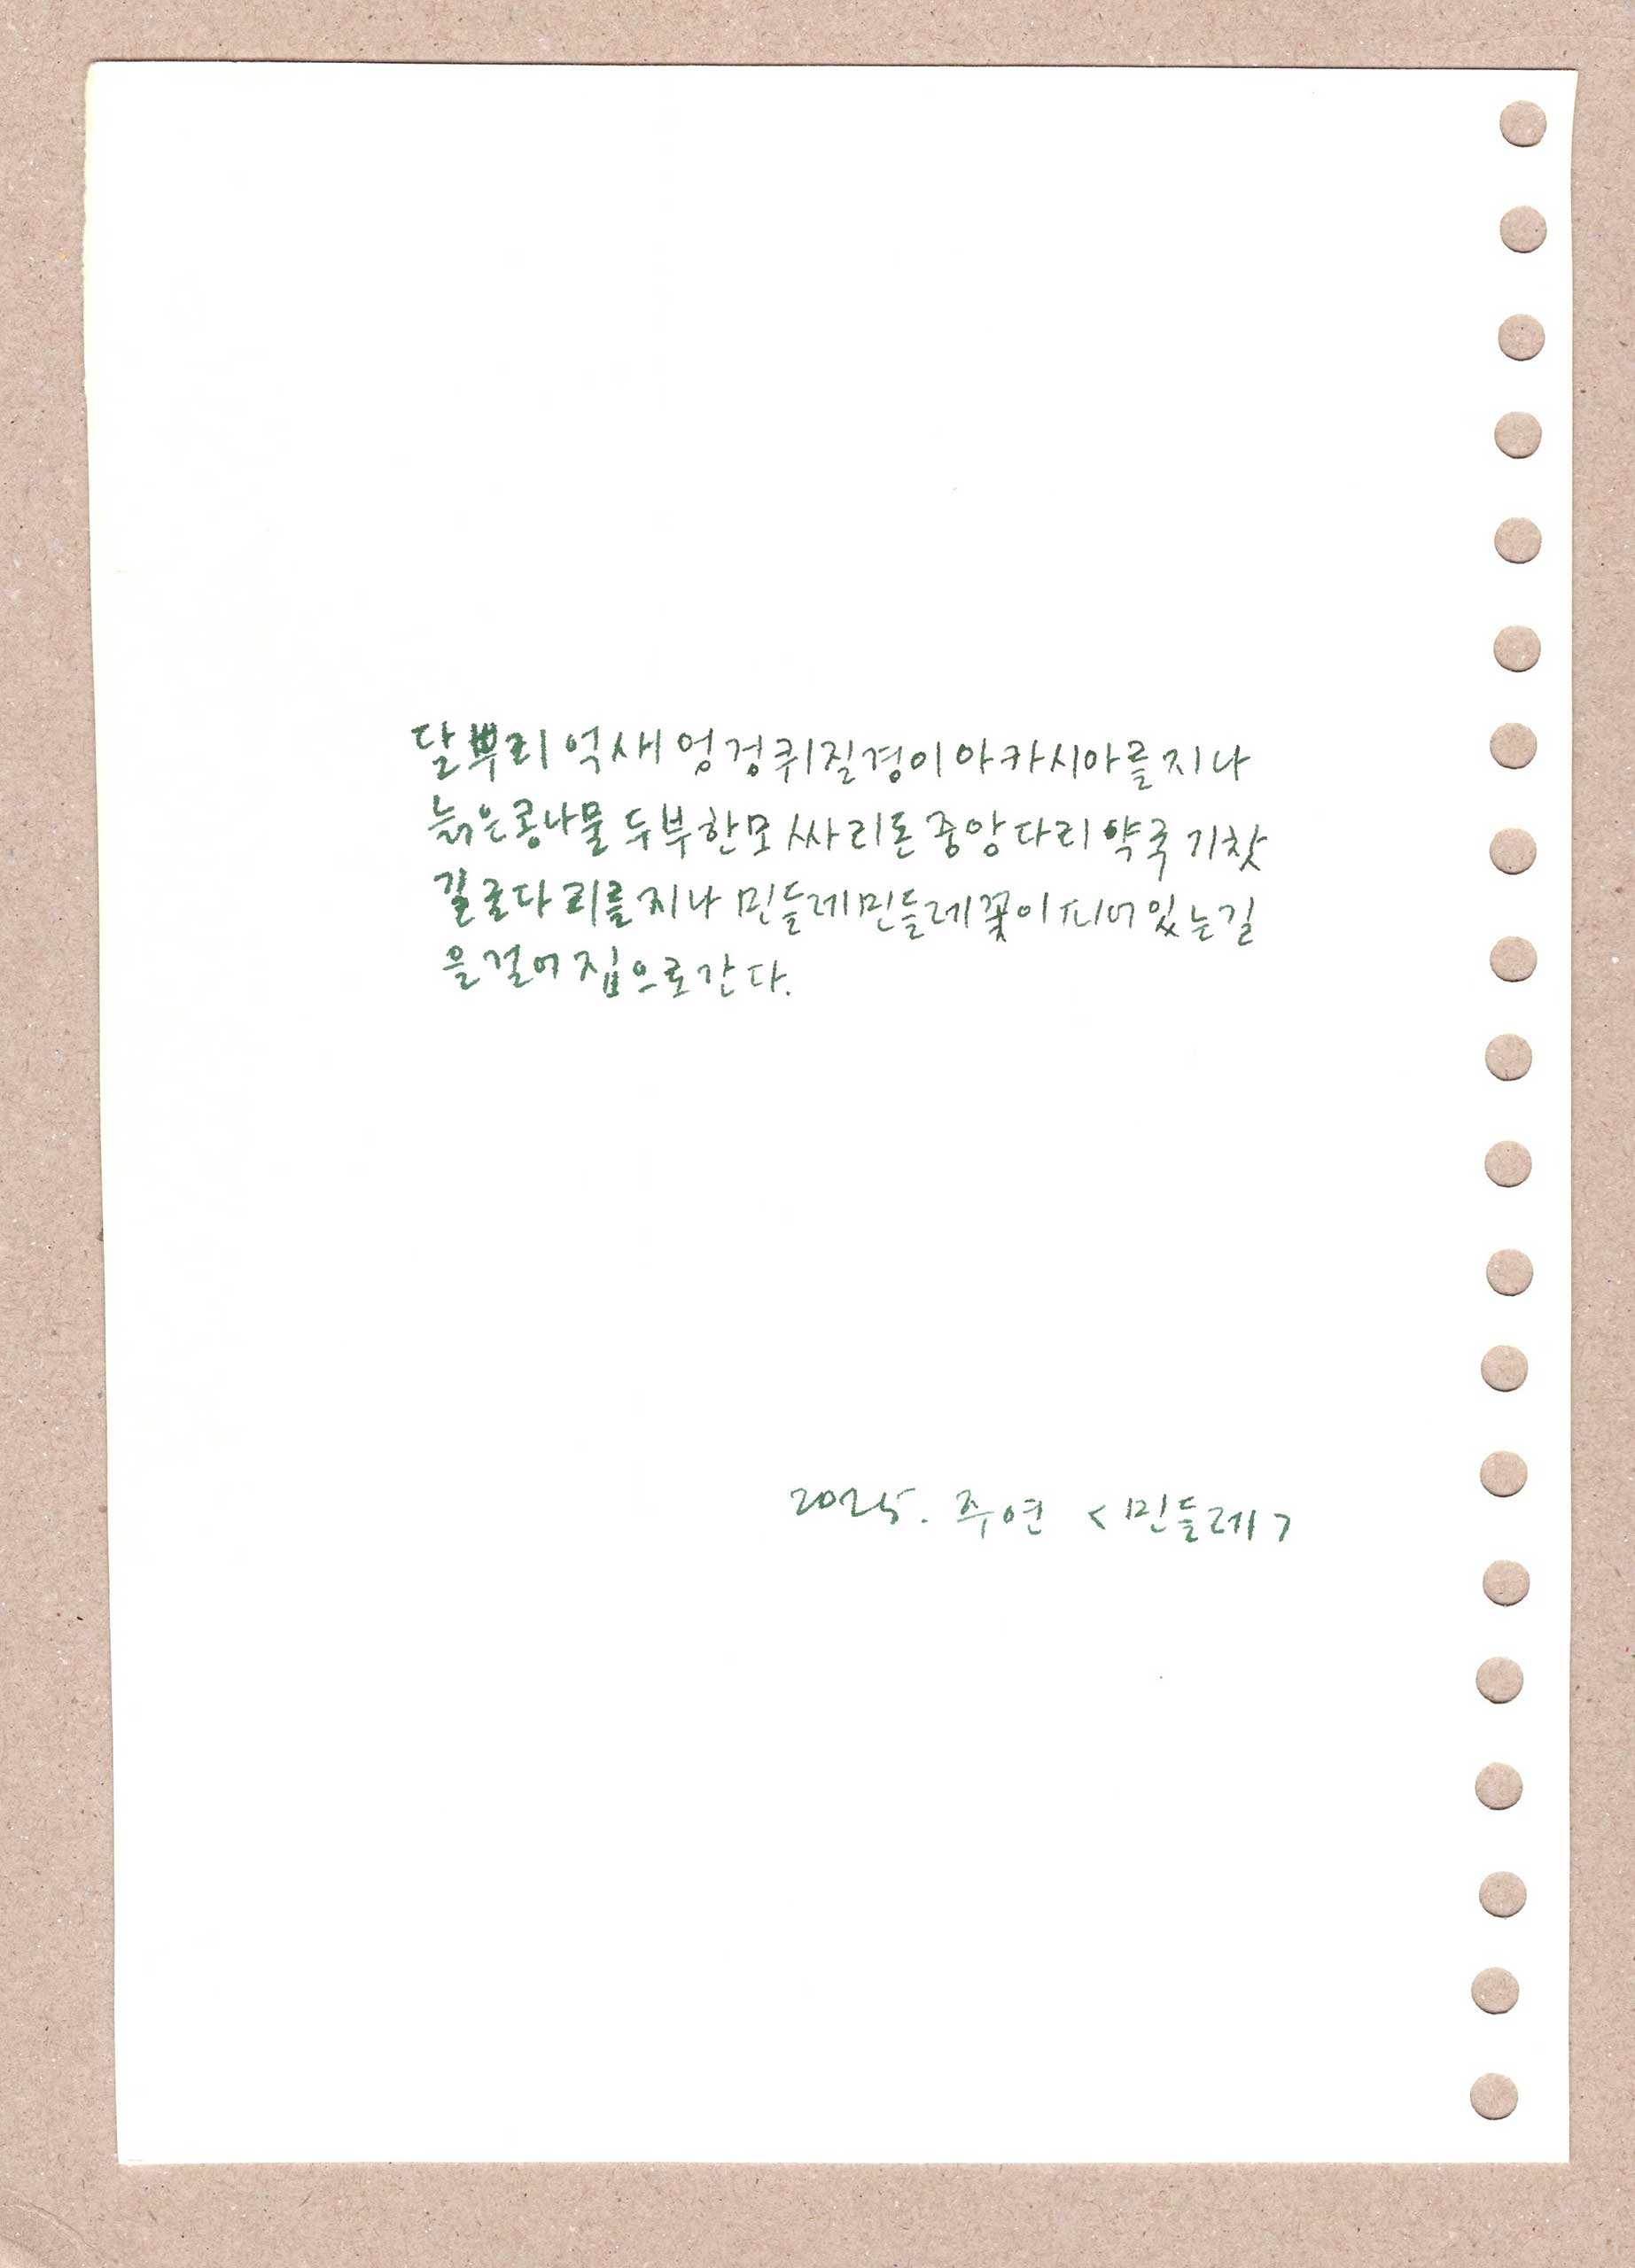 달뿌리 억새 엉겅퀴질경이아카시아를지나
늙은콩나물 두부한모 싸리돈 중앙다리약국 기찻
길굴다리를지나 민들레민들레꽃이피어있는길
을걸어집으로간다.
2025. 주연 <민들레>